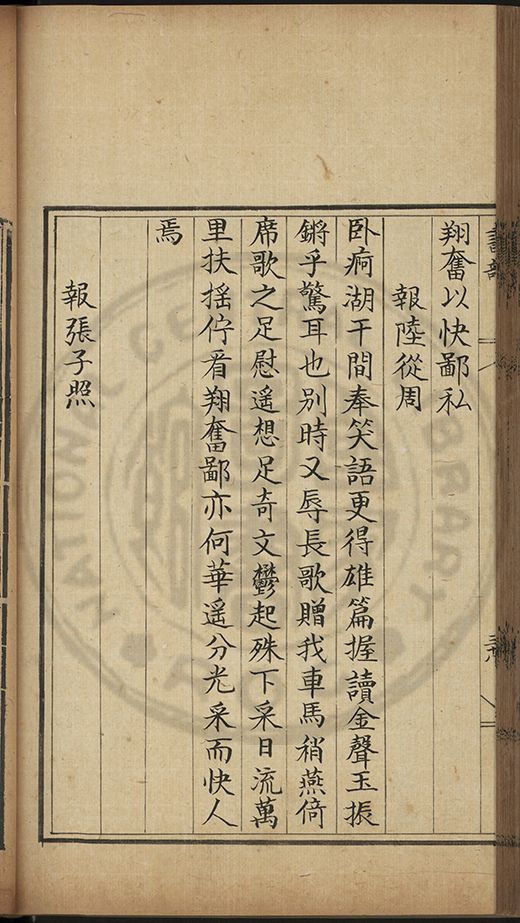 翔奮以快鄙私
報陸從周
卧痾湖干間奉笑語更得雄篇握讀金聲玉振
鏘乎驚耳也别時又辱長歌贈我車馬稍燕倚
席歌之足慰遥想足竒文欝起殊下采日流萬
里扶揺佇看翔奮鄙亦何華遥分光采而快人
焉
報張子照